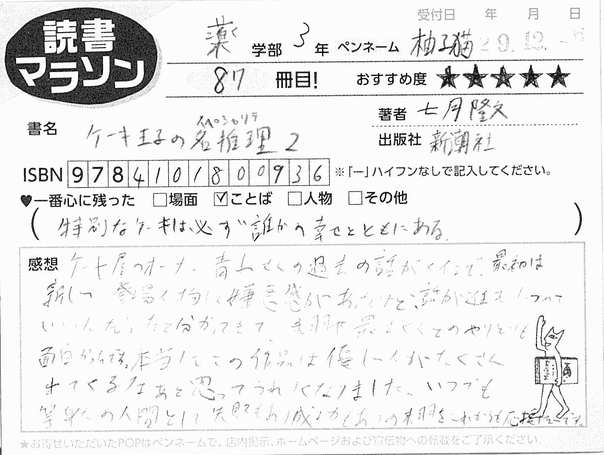 読書
マラソン
受付日 年 月 日
薬 学部 3 年 ペンネーム 柚子猫 29.12.
87 冊目! おすすめ度 ★★★★★
書名 ケーキ王子の名推理 2
スペシャリテ
著者 七月隆文
出版社 新潮社
ISBN 9784101800936 ※「ー」ハイフンなしで記入してください。
♥一番心に残った □場面 ☑ことば □人物 □その他
(特別なケーキは必ず誰かの幸せとともにある。)
感想 ケーキ屋のオーナー、青山さんの過去の話がメインで、最初は
新しい登場人物に嫌悪感があったけど、話が進むにつれて
いい人だったって分かってきて、未羽や最上くんとのやりとりも
面白かった。本当にこの作品は優しい人がたくさん
出てくるなあと思ってうれしくなりました。いつでも
等身大の人間として失敗もあり成功もありの未羽をこれからも応援したいです。
★お寄せいただいたPOPはペンネームで、店内掲示、ホームページおよび宣伝物への転載をご了承ください。